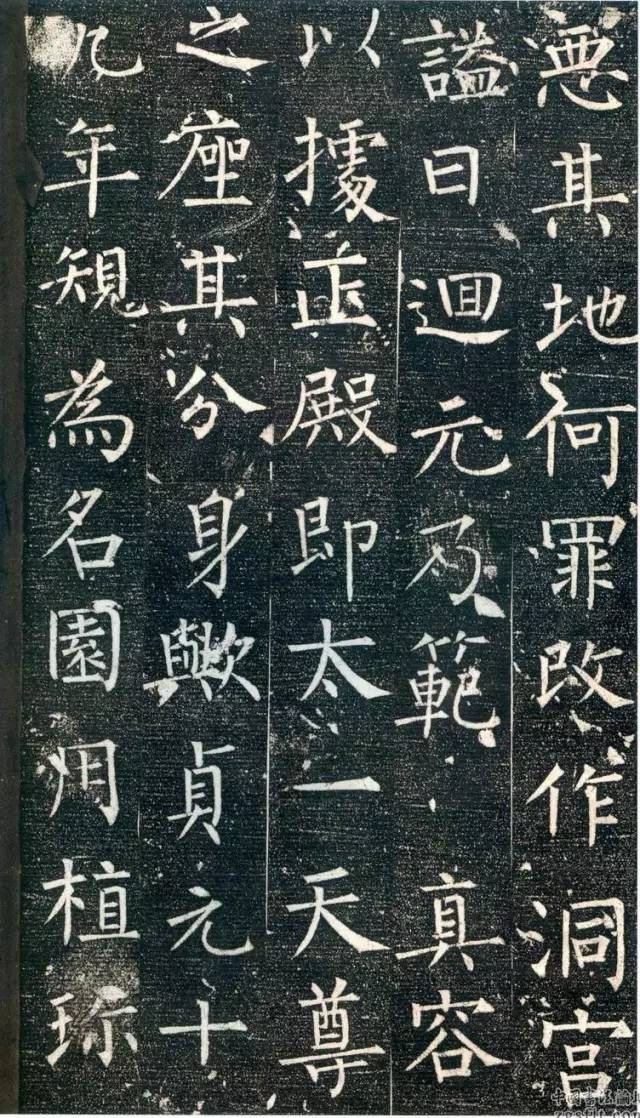 惡其地何罪改作洞宫
謚曰迴元乃範真容
以據正殿即太一天尊
之座其分身歟貞元十
九年規為名園用植珎